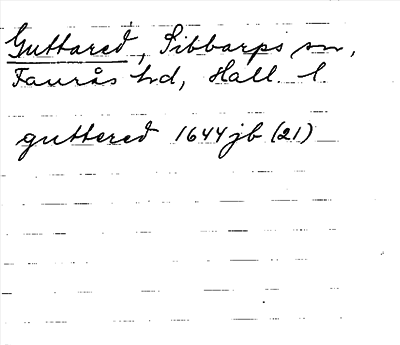 Guttared, Sibbarps sn,
Faurås hd, Hall. l.
guttered 1644 jb (21)